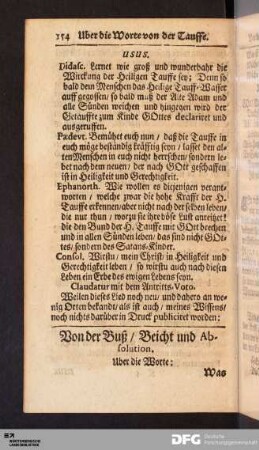 154 Uber die Worte von der Tauffe.
USUS.
Didasc. Lernet wie groß und wunderbahr die
Wirckung der Heiligen Tauffe sey; Denn so
bald dem Menschen das Heilige Tauff-Wasser
auff gegossen/ so bald muß der Alte Adam und
alle Sünden weichen und hingegen wird der
Getauffte zum Kinde GOttes declariret und
ausgeruffen.
Padevt. Bemühet euch nun / daß die Tauffe in
euch möge beständig kräfftig seyn/ lasset den al-
ten Menschen in euch nicht herrschen/ sondern le-
bet nach dem neuen/ der nach GOtt geschaffen
ist in Heiligkeit und Gerechtigkeit.
Ephanorth. Wie wollen es diejenigen verant-
worten / welche zwar die hohe Krafft der H.
Tauffe erkennen/ aber nicht nach der selben leben/
die nur thun / worzu sie ihre böse Lust anreitzet!
die den Bund der H. Tauffe mit GOtt brechen
und in allen Sünden leben/ das sind nicht GOt-
tes/ sondern des Satans-Kinder.
Consol. Wirstu/ mein Christ/ in Heiligkeit und
Gerechtigkeit leben / so wirstu auch nach diesen
Leben ein Erbe des ewigen Lebens seyn.
Claudatur mit dem Antritts-Voto.
Weilen dieses Lied noch neu und dahero an we-
nig Orten bekandt/ als ist auch / meines Wissens/
noch nichts darüber in Druck publiciret worden:
Von der Buß / Beicht und Ab-
solution,
Uber die Worte:
Was
DFG Deutsche
Forschungsgemeinschaft